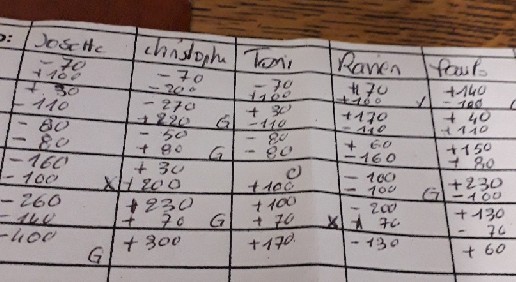 Josette Christophe Tomi
-70 -70 -70 +70 +140
+100 -200 +100 +100 -100
+30 -270 +30 +170 +40
-110 +220 G -110 -110 +110
-80 -50 -80 +60 +150
-80 +80 G -80 -160 +80
-160 +30 0 -100 +230
-100 X +200 +100 -100 G -100
-260 +230 +100 -200 +130
-140 +70 G +70 X +70 -70
-400 +300 +170 -130 +60
G